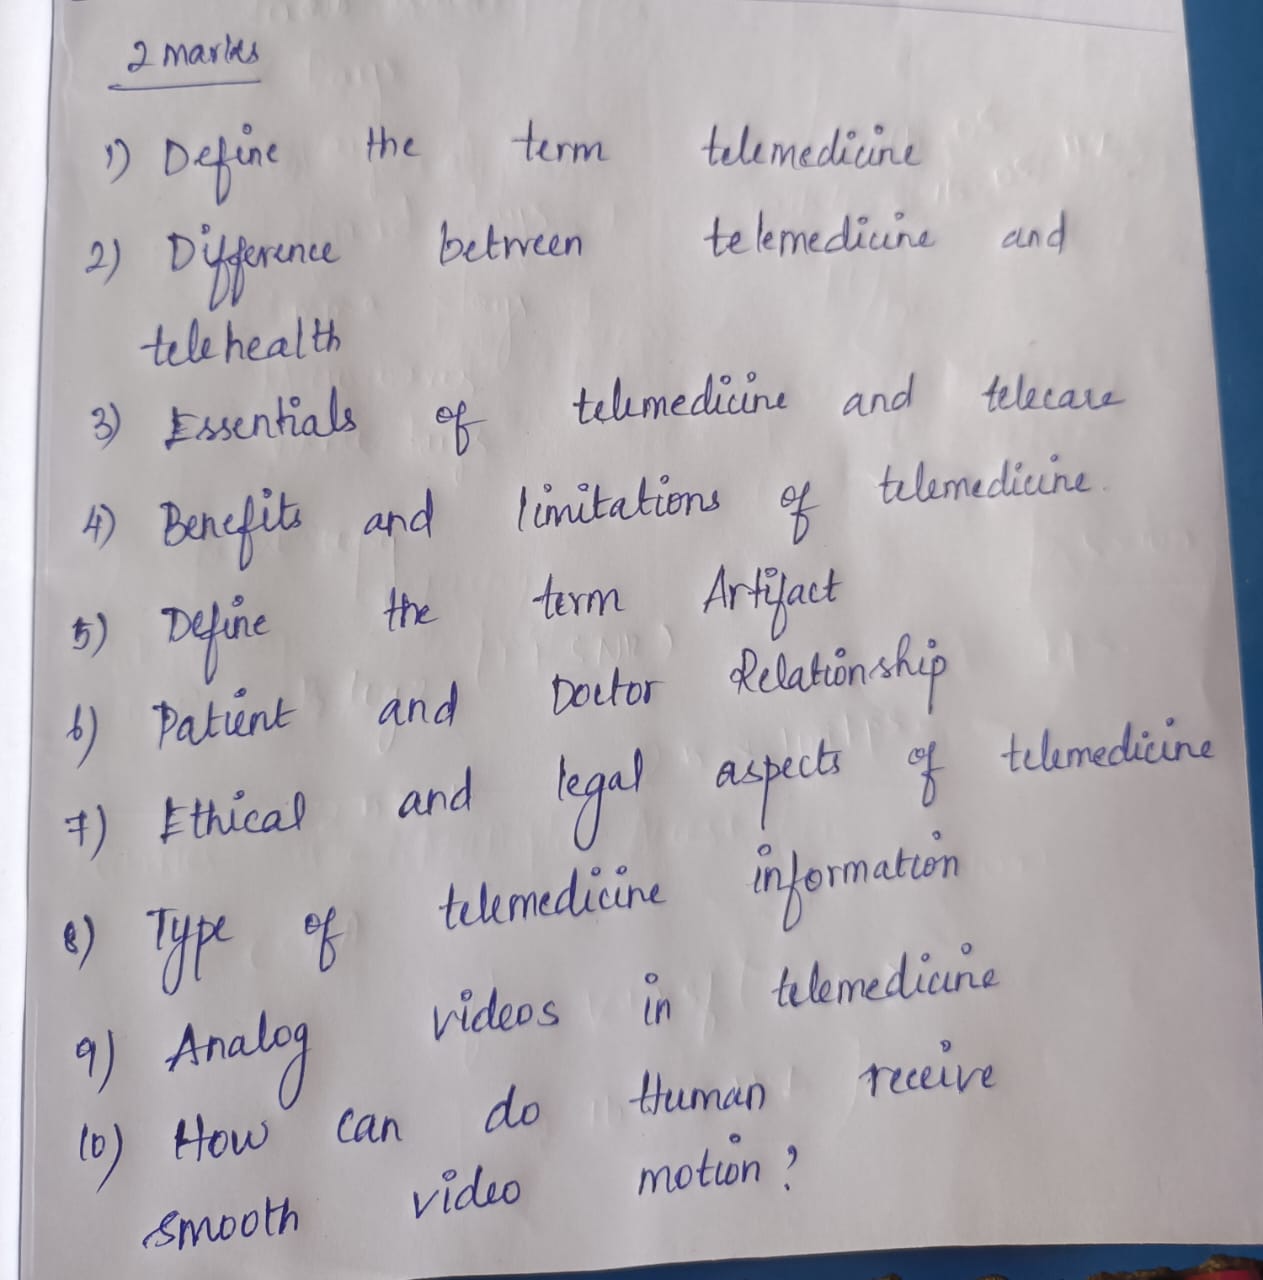 2 marks
1) Define the term telemedicine
2) Difference between telemedicine and
telehealth
3) Essentials of telemedicine and telecare
4) Benefits and limitations of telemedicine.
5) Define the term Artifact
6) Patient and Doctor Relationship
7) Ethical and legal aspects of telemedicine
8) Type of telemedicine information
9) Analog videos in telemedicine
10) How can do Human receive
smooth video motion?